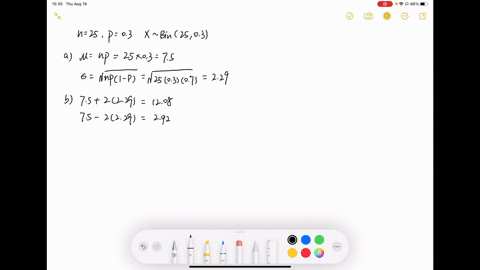 15:55 Thu Aug 19
n=25, p=0.3 X~Bin(25,0.3)
a) μ = np = 25×0.3 = 7.5
σ = √np(1-p) = √25(0.3)(0.7) = 2.29
b) 7.5+2(2.29) = 12.08
7.5-2(2.29) = 2.92